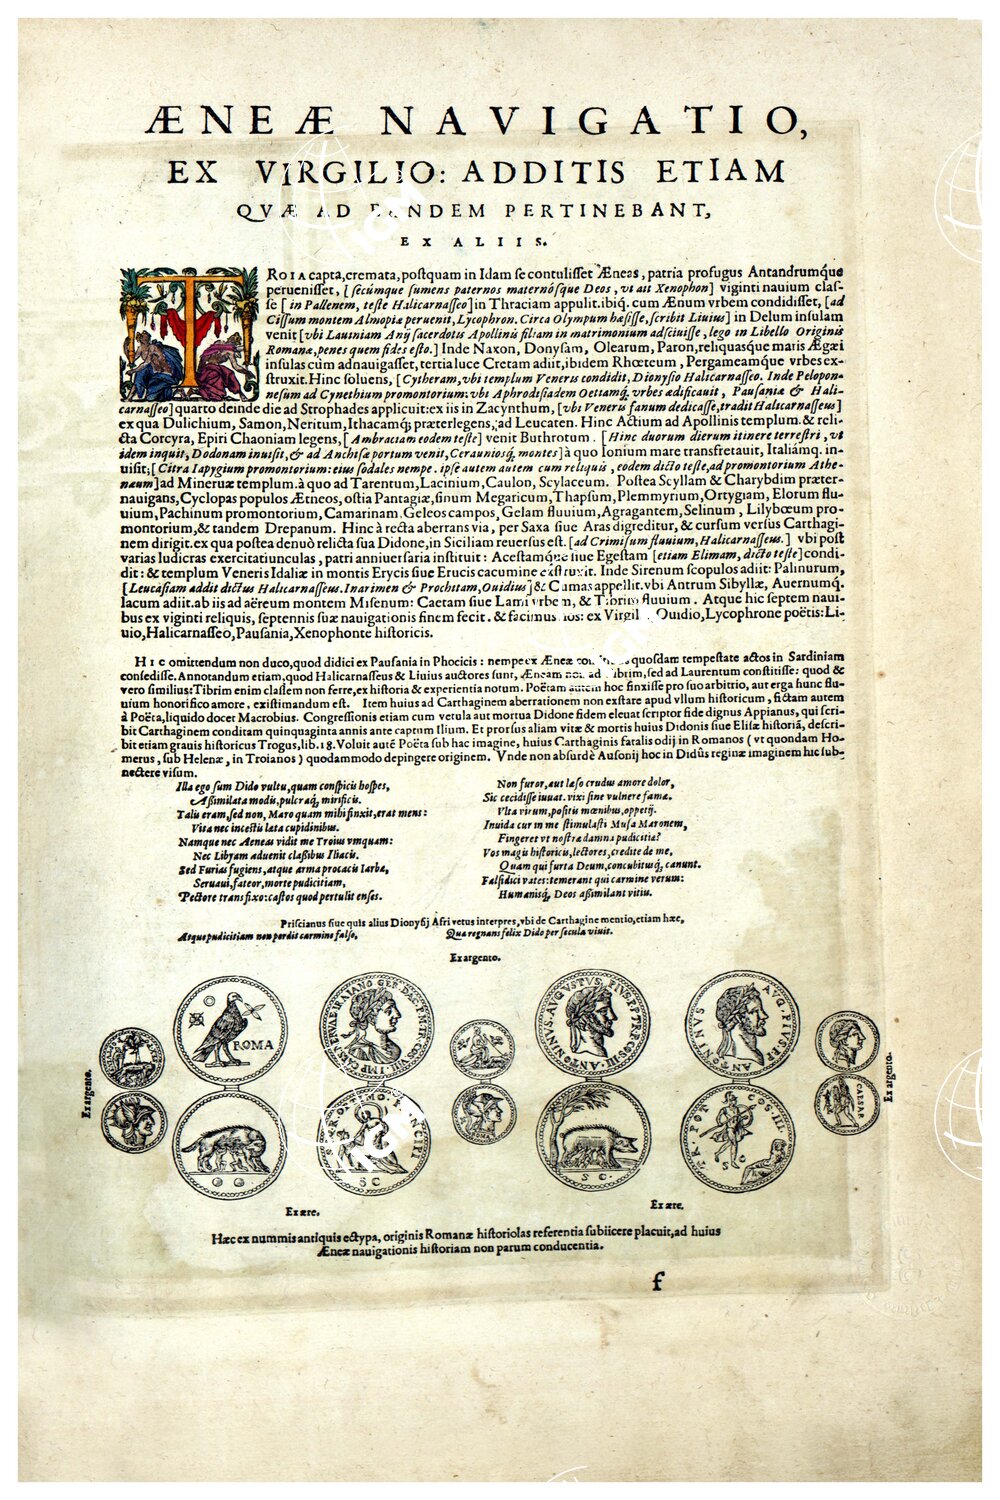 ÆNEÆ NAVIGATIO,
EX VIRGILIO: ADDITIS ETIAM
QVÆ AD EANDEM PERTINEBANT,
EX ALIIS.
TROIA capta, cremata, postquam in Idam se contulisset Æneas, patria profugus Antandrumque
peruenisset, [secúmque sumens paternos maternósque Deos, vt ait Xenophon] viginti nauium clas-
se [in Pallenem, teste Halicarnasseo] in Thraciam appulit. ibiq. cum Ænum vrbem condidisset, [ad
Cissum montem Almopiæ peruenit, Lycophron. Circa Olympum hæsisse, scribit Liuius] in Delum insulam
venit [vbi Lauiniam Anij sacerdotis Apollinis filiam in matrimonium adsciuisse, lego in Libello Originis
Romanæ, penes quem fides esto.] Inde Naxon, Donysam, Olearum, Paron, reliquasque maris Ægæi
insulas cùm adnauigasset, tertia luce Cretam adiit, ibidem Rhœteum, Pergameamque vrbes ex-
struxit. Hinc soluens, [Cytheram, vbi templum Veneris condidit, Dionysio Halicarnasseo. Inde Pelopon-
nesum ad Cynethium promontorium: vbi Aphrodisiadem Oetiamq. vrbes ædificauit, Pausaniæ & Hali-
carnasseo] quarto deinde die ad Strophades applicuit: ex iis in Zacynthum, [vbi Veneris fanum dedicasse, tradit Halicarnasseus]
ex qua Dulichium, Samon, Neritum, Ithacamq; præterlegens, ad Leucaten. Hinc Actium ad Apollinis templum. & reli-
cta Corcyra, Epiri Chaoniam legens, [Ambraciam eodem teste] venit Buthrotum. [Hinc duorum dierum itinere terrestri, vt
idem inquit, Dodonam inuisit, & ad Anchisæ portum venit, Cerauniosq. montes] à quo Ionium mare transfretauit, Italiámq. in-
uisit; [Citra Iapygium promontorium: eius sodales nempe. ipse autem autem cum reliquis, eodem dicto teste, ad promontorium Athe-
næum] ad Mineruæ templum. à quo ad Tarentum, Lacinium, Caulon, Scylaceum. Postea Scyllam & Charybdim præter-
nauigans, Cyclopas populos Ætneos, ostia Pantagiæ, sinum Megaricum, Thapsum, Plemmyrium, Ortygiam, Elorum flu-
uium, Pachinum promontorium, Camarinam, Geleos campos, Gelam fluuium, Agragantem, Selinum, Lilybœum pro-
montorium, & tandem Drepanum. Hinc à recta aberrans via, per Saxa siue Aras digreditur, & cursum versus Carthagi-
nem dirigit. ex qua postea denuò relicta sua Didone, in Siciliam reuersus est. [ad Crimisum fluuium, Halicarnasseus.] vbi post
varias ludicras exercitatiunculas, patri anniuersaria instituit: Acestamque siue Egestam [etiam Elimam, dicto teste] condi-
dit: & templum Veneris Idaliæ in montis Erycis siue Erucis cacumine exstruxit. Inde Sirenum scopulos adiit: Palinurum,
[Leucasiam addit dictus Halicarnasseus. Inarimen & Prochitam, Ouidius] & Cumas appellit. vbi Antrum Sibyllæ, Auernumq.
lacum adiit. ab iis ad aëreum montem Misenum: Caetam siue Lami vrbem, & Tibrim fluuium. Atque hic septem naui-
bus ex viginti reliquis, septennis suæ nauigationis finem fecit. & facimus nos: ex Virgil. Ouidio, Lycophrone poëtis: Li-
uio, Halicarnasseo, Pausania, Xenophonte historicis.
HIC omittendum non duco, quod didici ex Pausania in Phocicis: nempe ex Æneæ quosdam tempestate actos in Sardiniam
consedisse. Annotandum etiam, quod Halicarnasseus & Liuius auctores sunt, Æneam non ad Tibrim, sed ad Laurentum constitisse: quod &
vero similius: Tibrim enim classem non ferre, ex historia & experientia notum. Poëtam autem hoc finxisse pro suo arbitrio, aut erga hunc flu-
uium honorifico amore, existimandum est. Item huius ad Carthaginem aberrationem non exstare apud vllum historicum, fictam autem
à Poëta, liquido docet Macrobius. Congressionis etiam cum vetula aut mortua Didone fidem eleuat scriptor fide dignus Appianus, qui scri-
bit Carthaginem conditam quinquaginta annis ante captum Ilium. Et prorsus aliam vitæ & mortis huius Didonis siue Elisæ historiã, descri-
bit etiam grauis historicus Trogus, lib. 18. Voluit autẽ Poëta sub hac imagine, huius Carthaginis fatalis odij in Romanos (vt quondam Ho-
merus, sub Helenæ, in Troianos) quodammodo depingere originem. Vnde non absurdè Ausonij hoc in Didûs reginæ imaginem hic sub-
nectere visum.
Illa ego sum Dido vultu, quam conspicis hospes,
Aßimilata modis, pulcraq́, mirificis.
Talis eram, sed non, Maro quam mihi finxit, erat mens:
Vita nec incestis læta cupidinibus.
Namque nec Aeneas vidit me Troius vmquam:
Nec Libyam aduenit classibus Iliacis.
Sed Furias fugiens, atque arma procacis Iarbæ,
Seruaui, fateor, morte pudicitiam,
Pectore transfixo: castos quod pertulit enses.
Non furor, aut læso crudus amore dolor,
Sic cecidisse iuuat. vixi sine vulnere famæ.
Vlta virum, positis mœnibus, oppetij.
Inuida cur in me stimulasti Musa Maronem,
Fingeret vt nostræ damna pudicitiæ?
Vos magis historicis, lectores, credite de me,
Quàm qui furta Deum, concubitusq́, canunt.
Falsidici vates: temerant qui carmine verum:
Humanisq́, Deos aßimilant vitiis.
Priscianus siue quis alius Dionysij Afri vetus interpres, vbi de Carthagine mentio, etiam hæc,
Atque pudicitiam non perdit carmine falso,
Quæ regnans felix Dido per secula viuit.
Ex argento.
ROMA
ANTONINVS. AVGVSTVS. PIVS. P. P. TR. P. COS. III.
ANTONINVS AVG. PIVS. P. P.
Ex argento.
Ex argento.
ROMA
CAESAR
S. P. Q. R. OPTIMO. PRINCIPI
S C
S. C.
TR. POT COS. III.
S C
Ex ære.
Ex ære.
Hæc ex nummis antiquis ectypa, originis Romanæ historiolas referentia subiicere placuit, ad huius
Æneæ nauigationis historiam non parum conducentia.
f